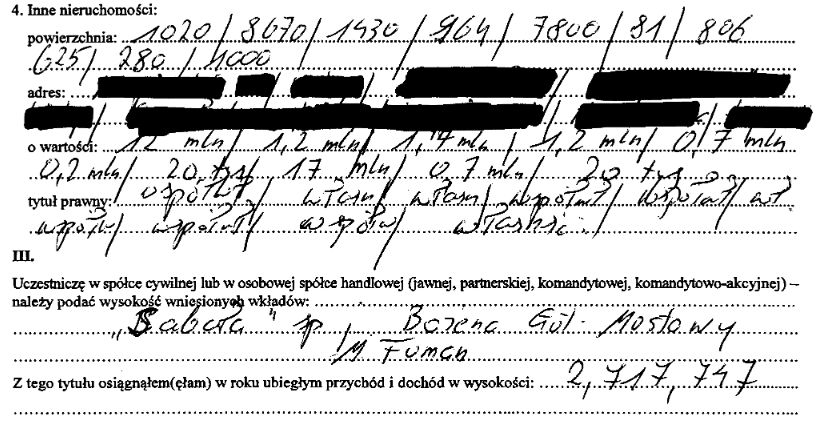 4. Inne nieruchomości:
powierzchnia: 1020/8070/1430/964/7800/81/806
625/280/1000
adres:
o wartości: 12 mln/1,2 mln/1,4 mln/1,2 mln/0,7 mln
0,2 mln/20 tys/17 mln/0,7 mln/20 tys
tytuł prawny: współwł/ własn/ własn/ współwł/ współwł/ wł
/ / / 
III.
Uczestniczę w spółce cywilnej lub w osobowej spółce handlowej (jawnej, partnerskiej, komandytowej, komandytowo-akcyjnej) –
należy podać wysokość wniesionych wkładów:
"Babcia" sp, Bożena Gul-Mostowy
M Fuman
Z tego tytułu osiągnąłem(ęłam) w roku ubiegłym przychód i dochód w wysokości: 2,717,747